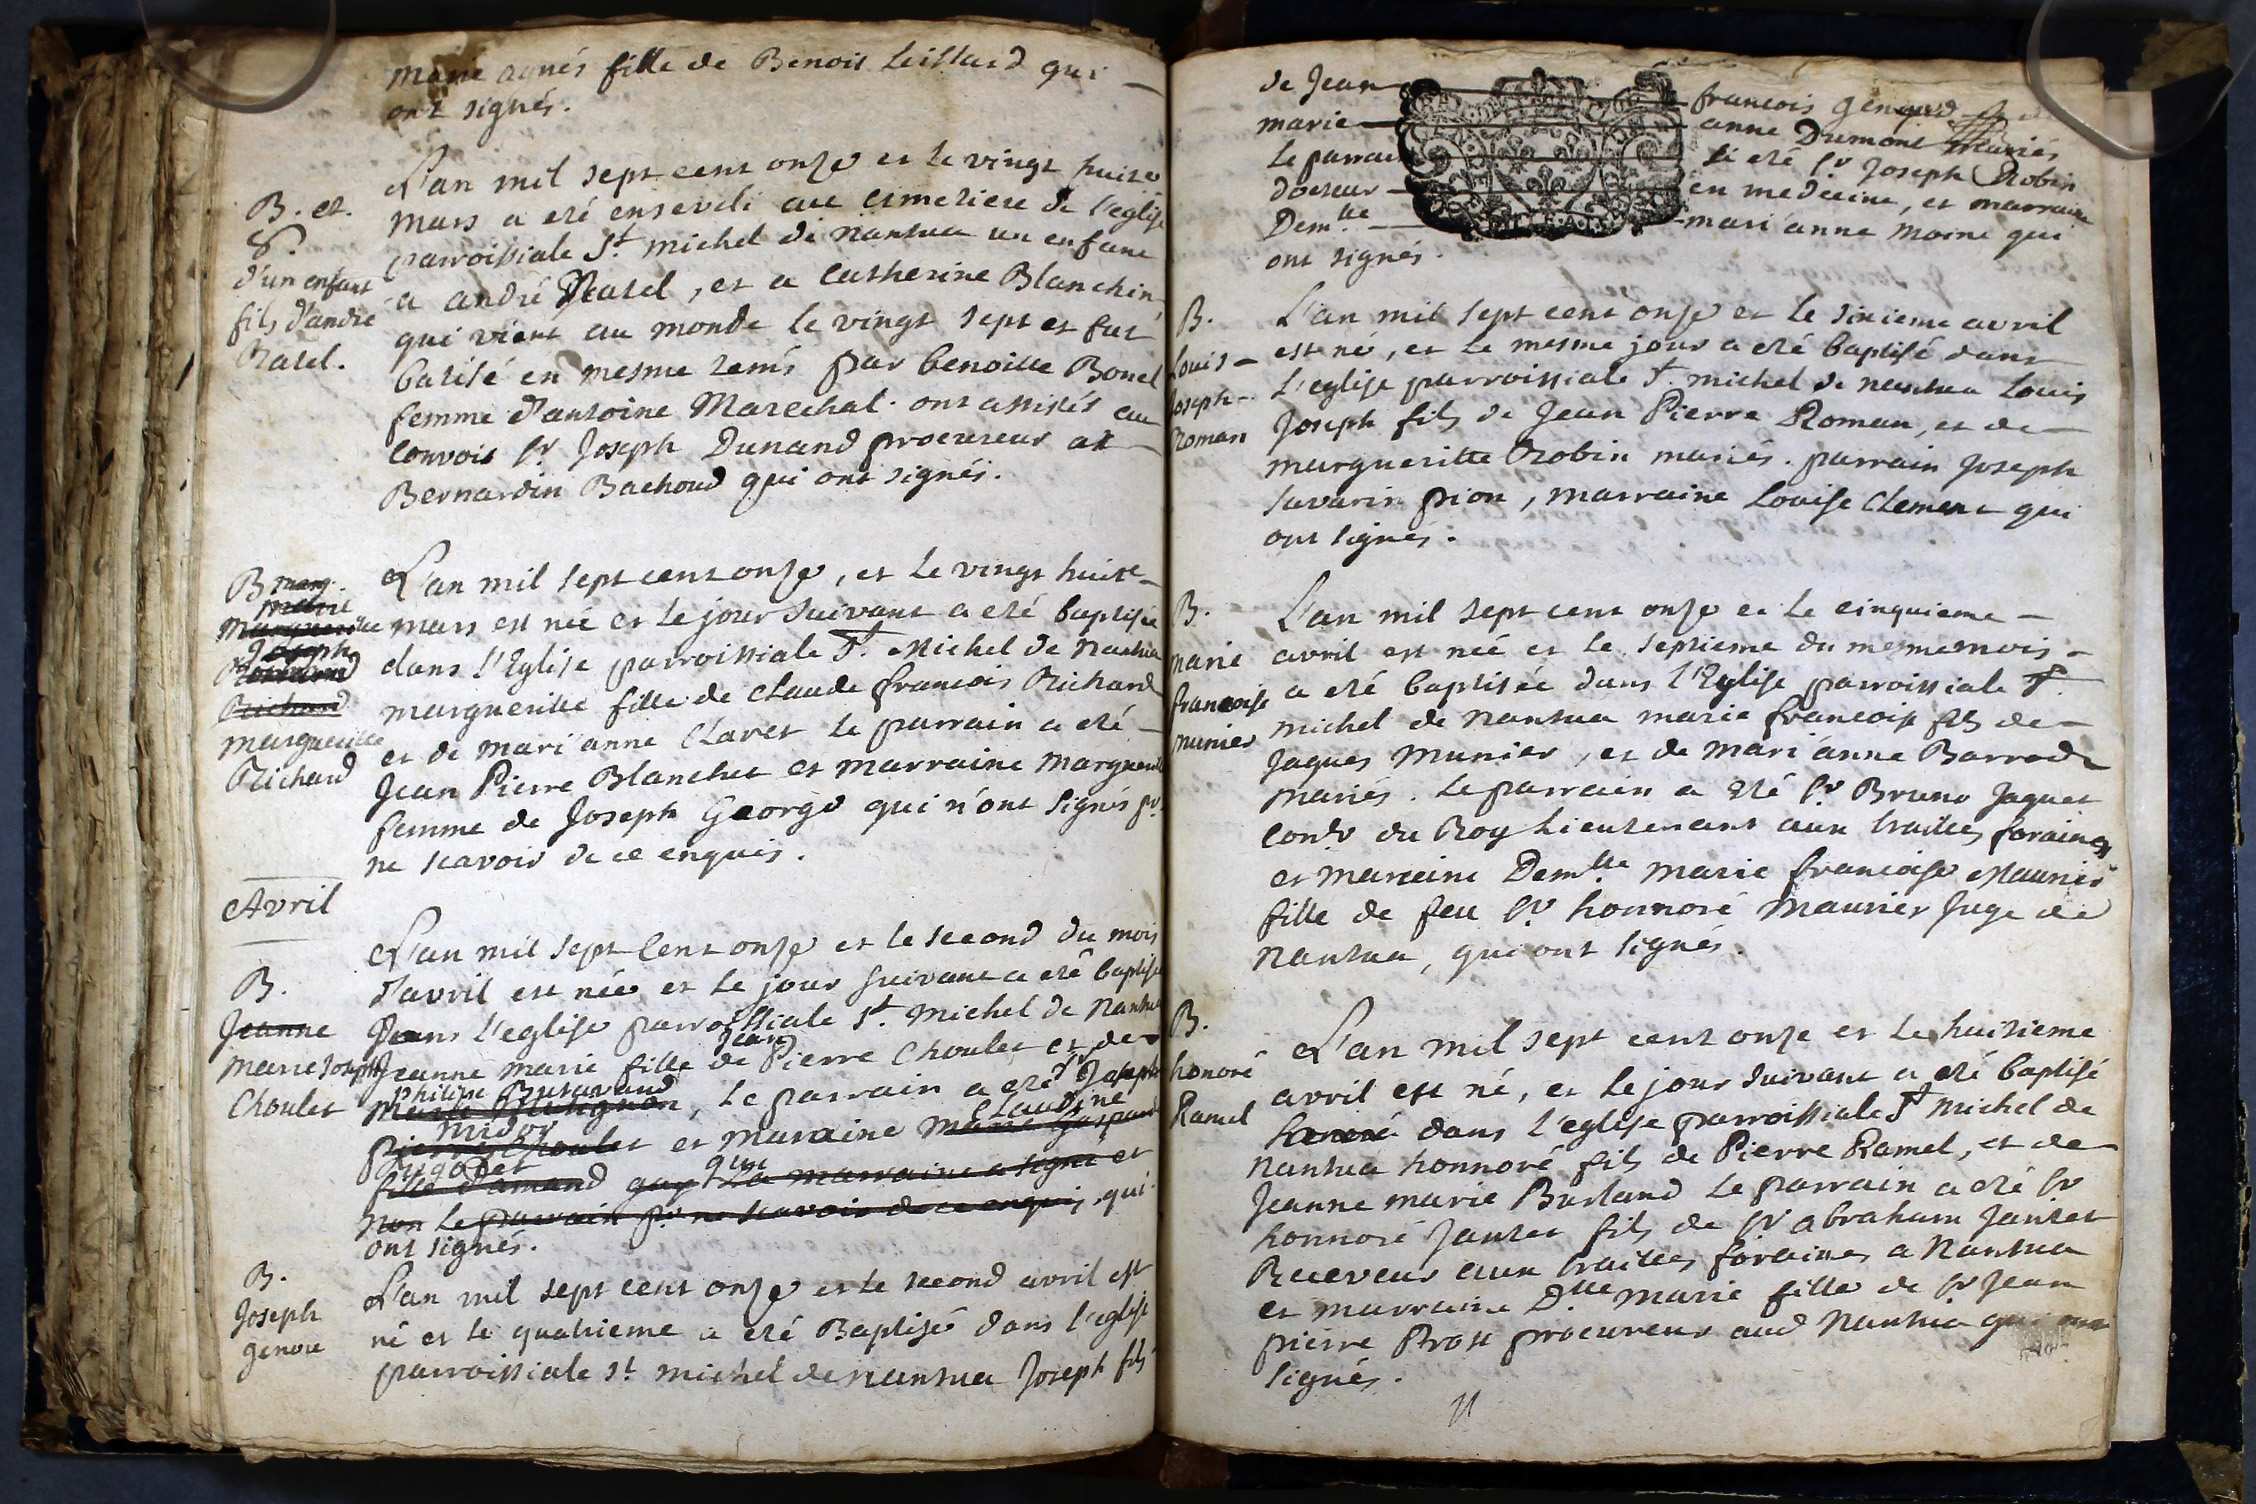 marie agnés fille de Benoit Leillard qui
ont signés.
B. et.
S.
d'un enfant
fils d'andré
Ratel.
L'an mil sept cent onze et le vingt huite
mars a eté enseveli au cimetiere de l'eglise
parroissiale St. michel de nantua un enfant
a andré Ratel, et a Catherine Blanchin
qui vient au monde le vingt sept et fut
batisé en mesme tems par benoitte Bonel
femme d'antoine Marechal. ont assistés au
convois sr. Joseph Dunand procureur et
Bernardin Bachoud qui ont signés.
B marg.
marie
Marguerite
Joseph
Richard
margueritte
Richard
L'an mil sept cent onze, et le vingt huite
mars est née et le jour suivant a eté baptisée
dans l'Eglise parroissiale St. Michel de Nantua
margueritte fille de Claude francois Richard
et de mari'anne Clavet le parrain a eté
Jean Pierre Blanchet et marraine margueritte
femme de Joseph George qui n'ont signés pr.
ne scavoir de ce enquis.
Avril
B.
Jeanne
marie Joseph
Choulet
L'an mil sept Cent onze et le second du mois
d'avril est née et le jour suivant a eté baptisée
Dans l'eglise parroissiale St. michel de Nantua
Jean
Jeanne marie fille de Pierre Choulet et de
philise Butavand
marie, le parrain a eté sr Joseph
midor claudine
pierre Choulet et maraine marie Gaspard
fille d'amand guy qui La marraine a signé et
non le parrain pr. ne scavoir de ce enquis, qui
ont signés.
B.
Joseph
genou
L'an mil sept cent onze et le second avril est
né et le quatrieme a eté Baptisé dans l'eglise
parroissiale St. michel de nantua Joseph fils
de Jean francois
marie anne Dumont mariés
Le parrain a eté sr Joseph Robin
docteur en medecine, et marraine
Demlle mari'anne moine qui
ont signés.
B.
Louis
Joseph
Roman
L'an mil sept cent onze et le sixieme avril
est né, et le mesme jour a eté baptisé dans
L'eglise parroissiale St. michel de nantua Louis
Joseph fils de Jean Pierre Roman, et de
margueritte Robin mariés. parrain Joseph
savarin pion, marraine Louise Clement qui
ont signés.
B.
marie
francoise
munier
L'an mil sept cent onze et le cinquieme
avril est née et le septieme du mesme mois
a eté baptisée dans l'Eglise parroissiale St.
michel de nantua marie francoise fils de
Jaques munier, et de mari'anne Barrade
mariés. Le parrain a eté sr Bruno Jaquet
conr du Roy Lieutenant aux traittes foraines
et maraine Demlle marie francoise Maurier
fille de feu sr honnoré maurier Juge de
nantua, qui ont signés.
B.
honoré
Ramel
L'an mil sept cent onze et le huitieme
avril est né, et le jour suivant a eté baptisé
honoré dans l'eglise parroissiale St michel de
nantua honnoré fils de Pierre Ramel, et de
Jeanne marie Burland Le parrain a eté sr
honnoré Jantet fils de sr abraham Jantet
Receveur aux traittes foraines a Nantua
et marraine Dlle marie fille de sr Jean
pierre Prost procureur aud Nantua qui ont
signés.